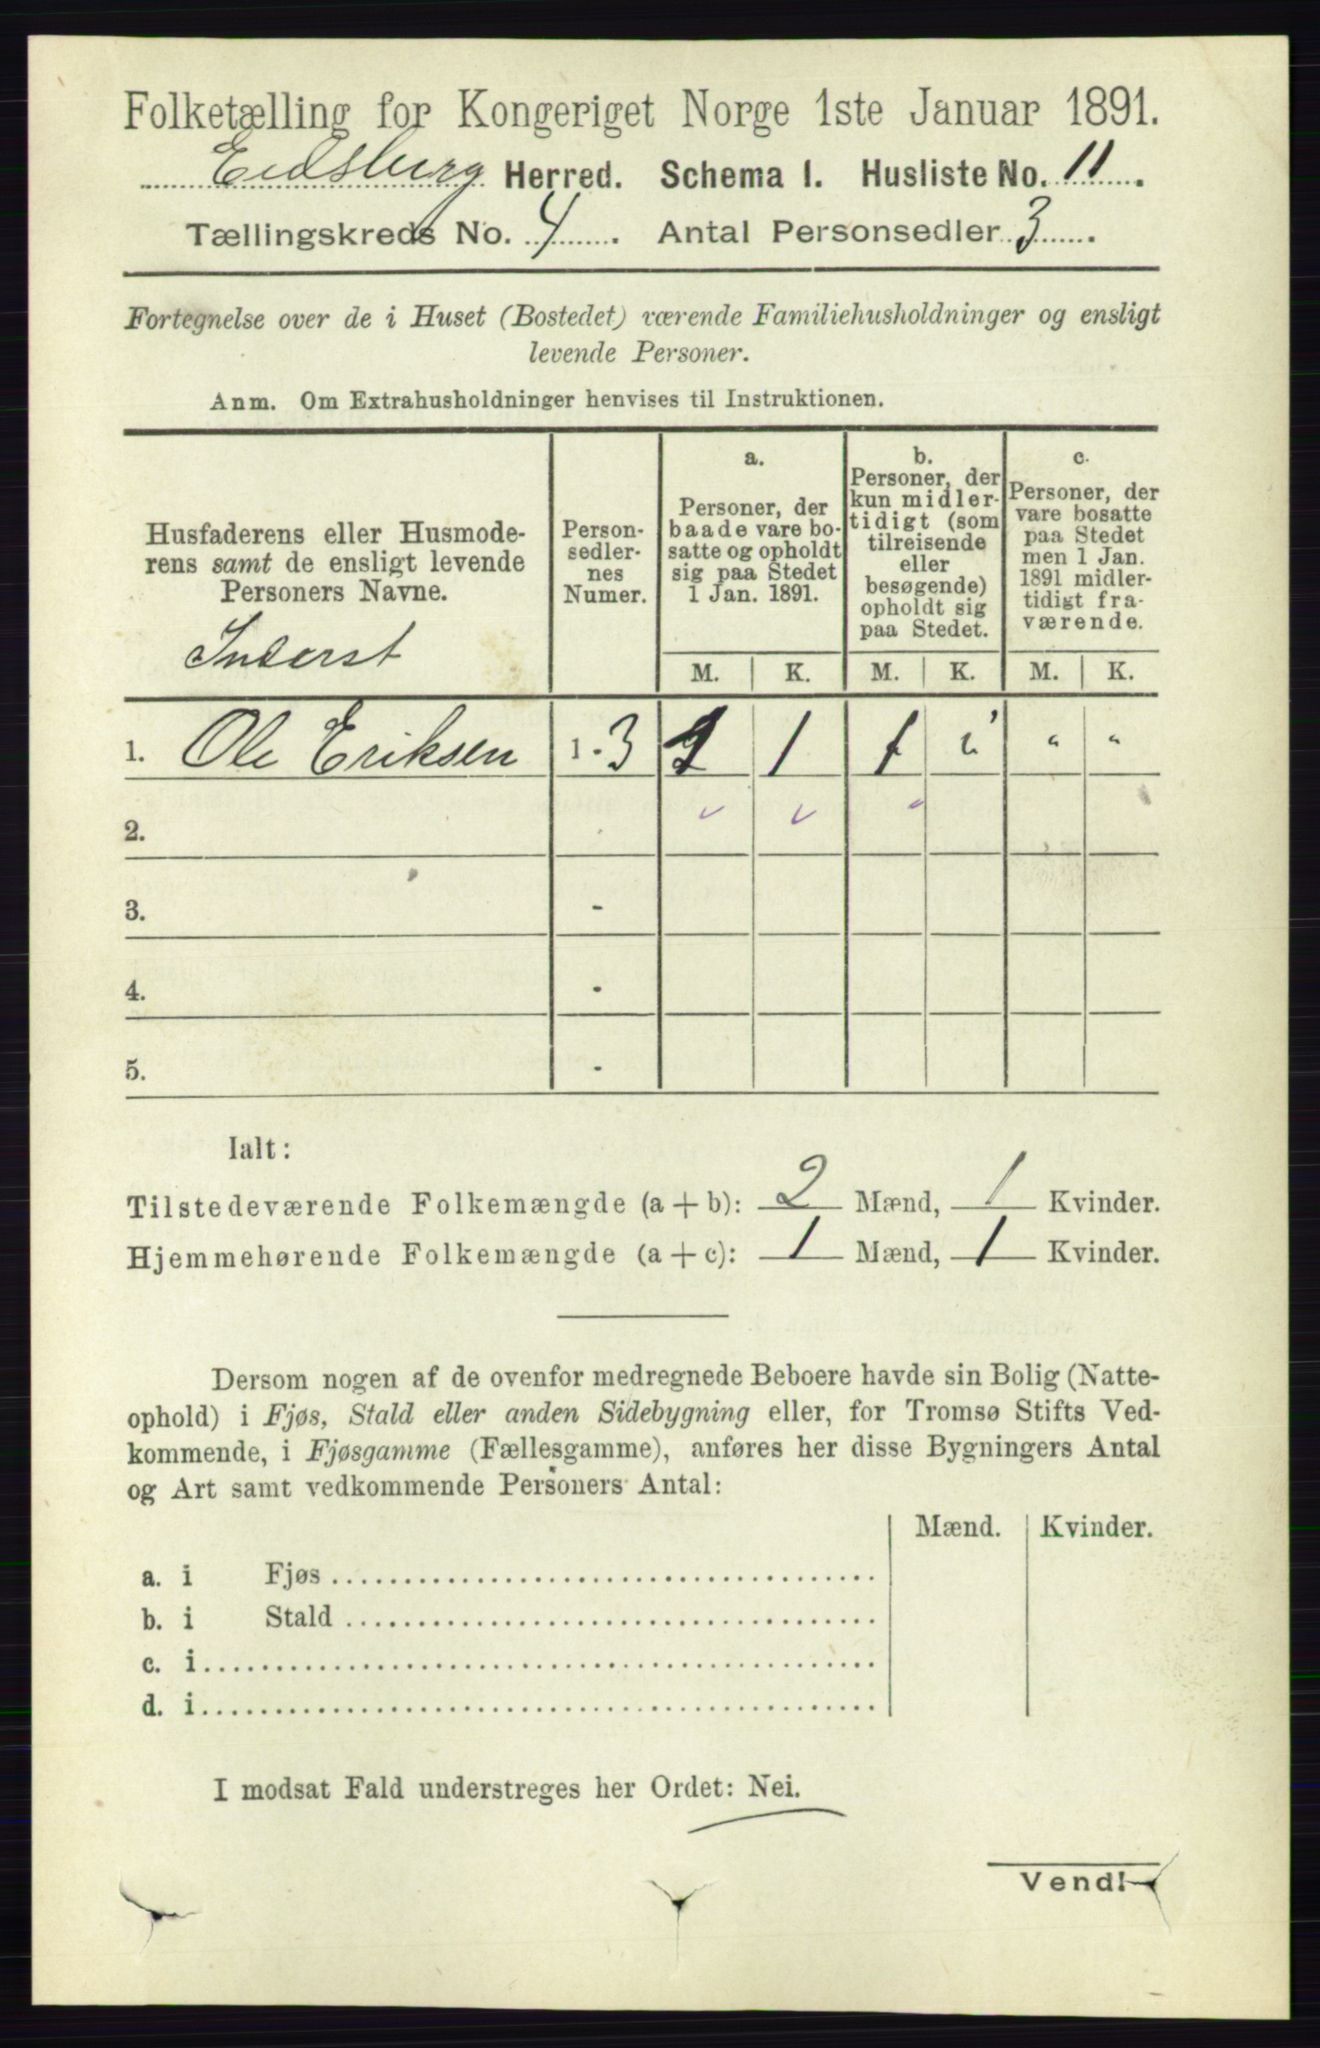 Folketælling for Kongeriget Norge 1ste Januar 1891.
Eidsberg Herred. Schema I. Husliste No. 11.
Tællingskreds No. 4. Antal Personsedler 3.
Fortegnelse over de i Huset (Bostedet) værende Familiehusholdninger og ensligt
levende Personer.
Anm. Om Extrahusholdninger henvises til Instruktionen.
Husfaderens eller Husmode-
rens samt de ensligt levende
Personers Navne.
Inderst
Person-
sedler-
nes
Numer.
a.
Personer, der
baade vare bo-
satte og opholdt
sig paa Stedet
1 Jan. 1891.
b.
Personer, der
kun midler-
tidigt (som
tilreisende
eller
besøgende)
opholdt sig
paa Stedet.
c.
Personer, der
vare bosatte
paa Stedet
men 1 Jan.
1891 midler-
tidigt fra-
værende.
M. K. M. K. M. K.
1. Ole Eriksen 1 - 3 1 1 1 " " "
2.
3. -
4. -
5. -
Ialt:
Tilstedeværende Folkemængde (a + b): 2 Mænd, 1 Kvinder.
Hjemmehørende Folkemængde (a + c): 1 Mænd, 1 Kvinder.
Dersom nogen af de ovenfor medregnede Beboere havde sin Bolig (Natte-
ophold) i Fjøs, Stald eller anden Sidebygning eller, for Tromsø Stifts Ved-
kommende, i Fjøsgamme (Fællesgamme), anføres her disse Bygningers Antal
og Art samt vedkommende Personers Antal:
Mænd. Kvinder.
a. i Fjøs
b. i Stald
c. i
d. i
I modsat Fald understreges her Ordet: Nei.
Vend!